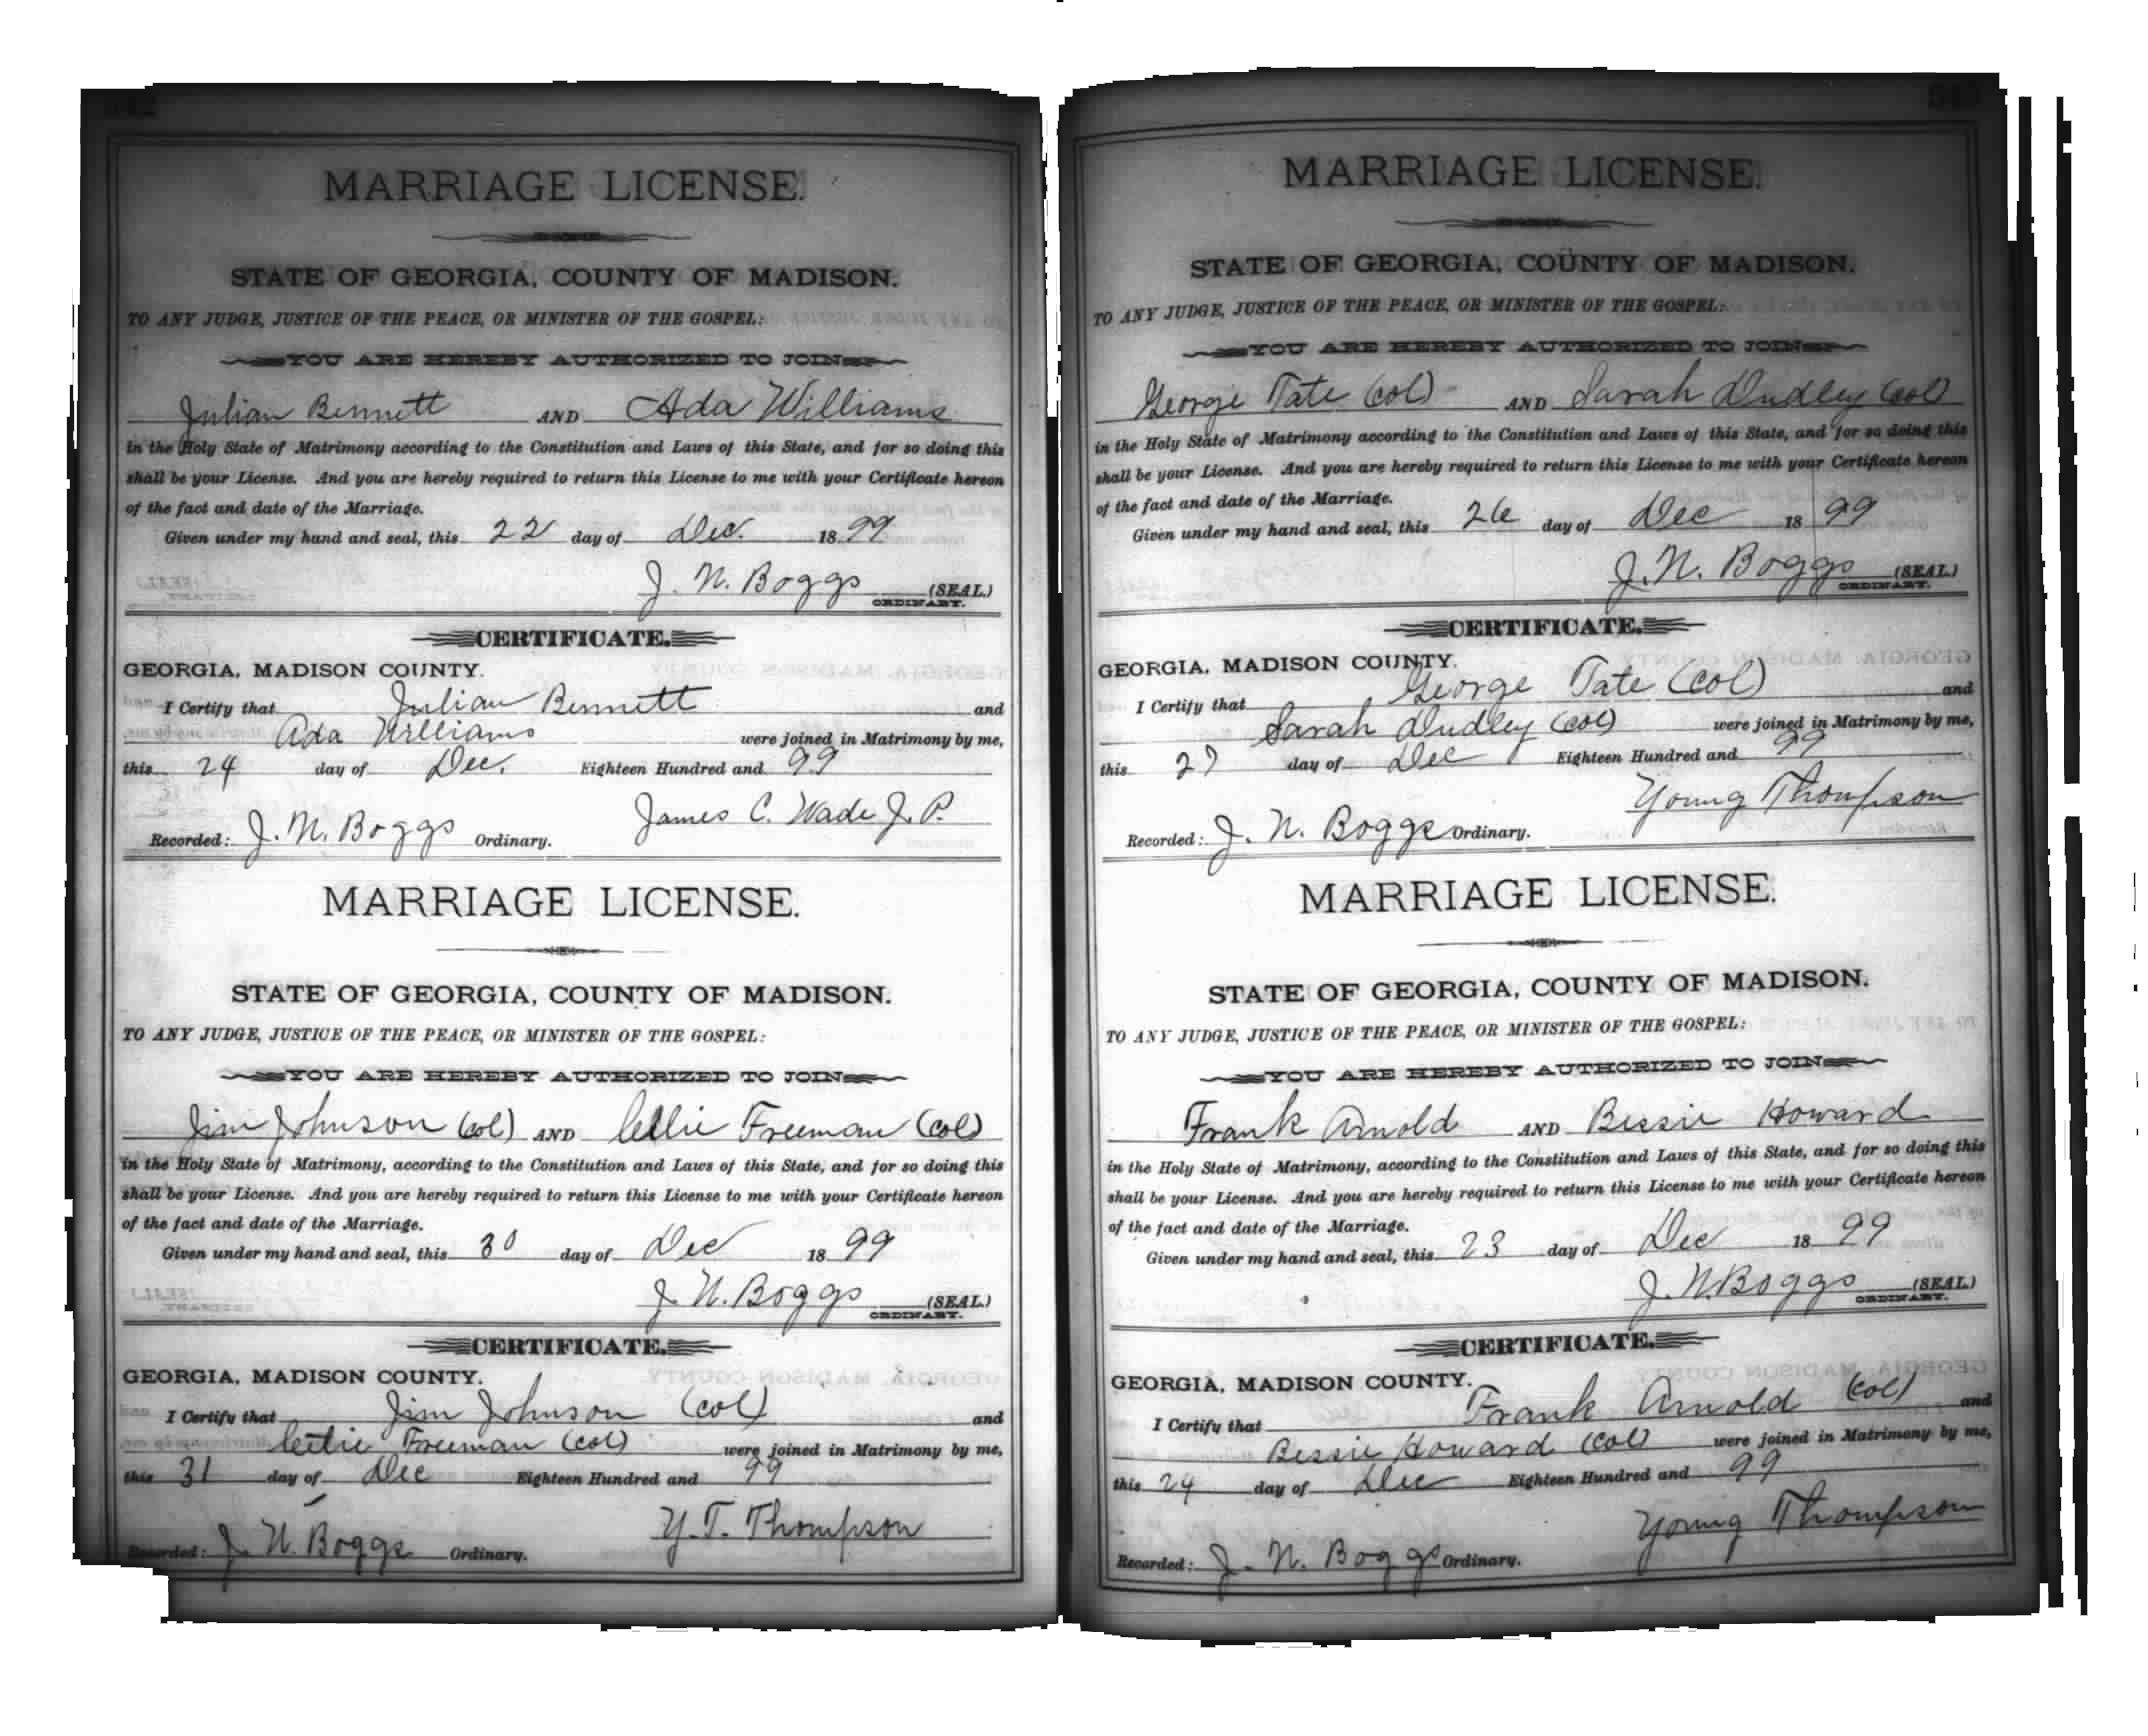 MARRIAGE LICENSE.
STATE OF GEORGIA, COUNTY OF MADISON.
TO ANY JUDGE, JUSTICE OF THE PEACE, OR MINISTER OF THE GOSPEL:
YOU ARE HEREBY AUTHORIZED TO JOIN
Julian Bennett AND Ada Williams
in the Holy State of Matrimony according to the Constitution and Laws of this State, and for so doing this
shall be your License. And you are hereby required to return this License to me with your Certificate hereon
of the fact and date of the Marriage.
Given under my hand and seal, this 22 day of Dec. 1899
J. N. Boggs (SEAL)
ORDINARY.
CERTIFICATE.
GEORGIA, MADISON COUNTY.
I Certify that Julian Bennett and
Ada Williams were joined in Matrimony by me,
this 24 day of Dec. Eighteen Hundred and 99
James C. Wade J. P.
Recorded: J. N. Boggs Ordinary.
MARRIAGE LICENSE.
STATE OF GEORGIA, COUNTY OF MADISON.
TO ANY JUDGE, JUSTICE OF THE PEACE, OR MINISTER OF THE GOSPEL:
YOU ARE HEREBY AUTHORIZED TO JOIN
Jim Johnson (col) AND Freeman (col)
in the Holy State of Matrimony, according to the Constitution and Laws of this State, and for so doing this
shall be your License. And you are hereby required to return this License to me with your Certificate hereon
of the fact and date of the Marriage.
Given under my hand and seal, this 30 day of Dec 1899
J. N. Boggs (SEAL)
ORDINARY.
CERTIFICATE.
GEORGIA, MADISON COUNTY.
I Certify that Jim Johnson (col) and
Freeman (col) were joined in Matrimony by me,
this 31 day of Dec Eighteen Hundred and 99
Y. T. Thompson
Recorded: J. N. Boggs Ordinary.
MARRIAGE LICENSE.
STATE OF GEORGIA, COUNTY OF MADISON.
TO ANY JUDGE, JUSTICE OF THE PEACE, OR MINISTER OF THE GOSPEL:
YOU ARE HEREBY AUTHORIZED TO JOIN
George Tate (col) AND Sarah Dudley (col)
in the Holy State of Matrimony according to the Constitution and Laws of this State, and for so doing this
shall be your License. And you are hereby required to return this License to me with your Certificate hereon
of the fact and date of the Marriage.
Given under my hand and seal, this 26 day of Dec 1899
J. N. Boggs (SEAL)
ORDINARY.
CERTIFICATE.
GEORGIA, MADISON COUNTY.
I Certify that George Tate (col) and
Sarah Dudley (col) were joined in Matrimony by me,
this 27 day of Dec Eighteen Hundred and 99
Young Thompson
Recorded: J. N. Boggs Ordinary.
MARRIAGE LICENSE.
STATE OF GEORGIA, COUNTY OF MADISON.
TO ANY JUDGE, JUSTICE OF THE PEACE, OR MINISTER OF THE GOSPEL:
YOU ARE HEREBY AUTHORIZED TO JOIN
Frank Arnold AND Bessie Howard
in the Holy State of Matrimony, according to the Constitution and Laws of this State, and for so doing this
shall be your License. And you are hereby required to return this License to me with your Certificate hereon
of the fact and date of the Marriage.
Given under my hand and seal, this 23 day of Dec 1899
J. N. Boggs (SEAL)
ORDINARY.
CERTIFICATE.
GEORGIA, MADISON COUNTY.
I Certify that Frank Arnold (col) and
Bessie Howard (col) were joined in Matrimony by me,
this 24 day of Dec Eighteen Hundred and 99
Young Thompson
Recorded: J. N. Boggs Ordinary.